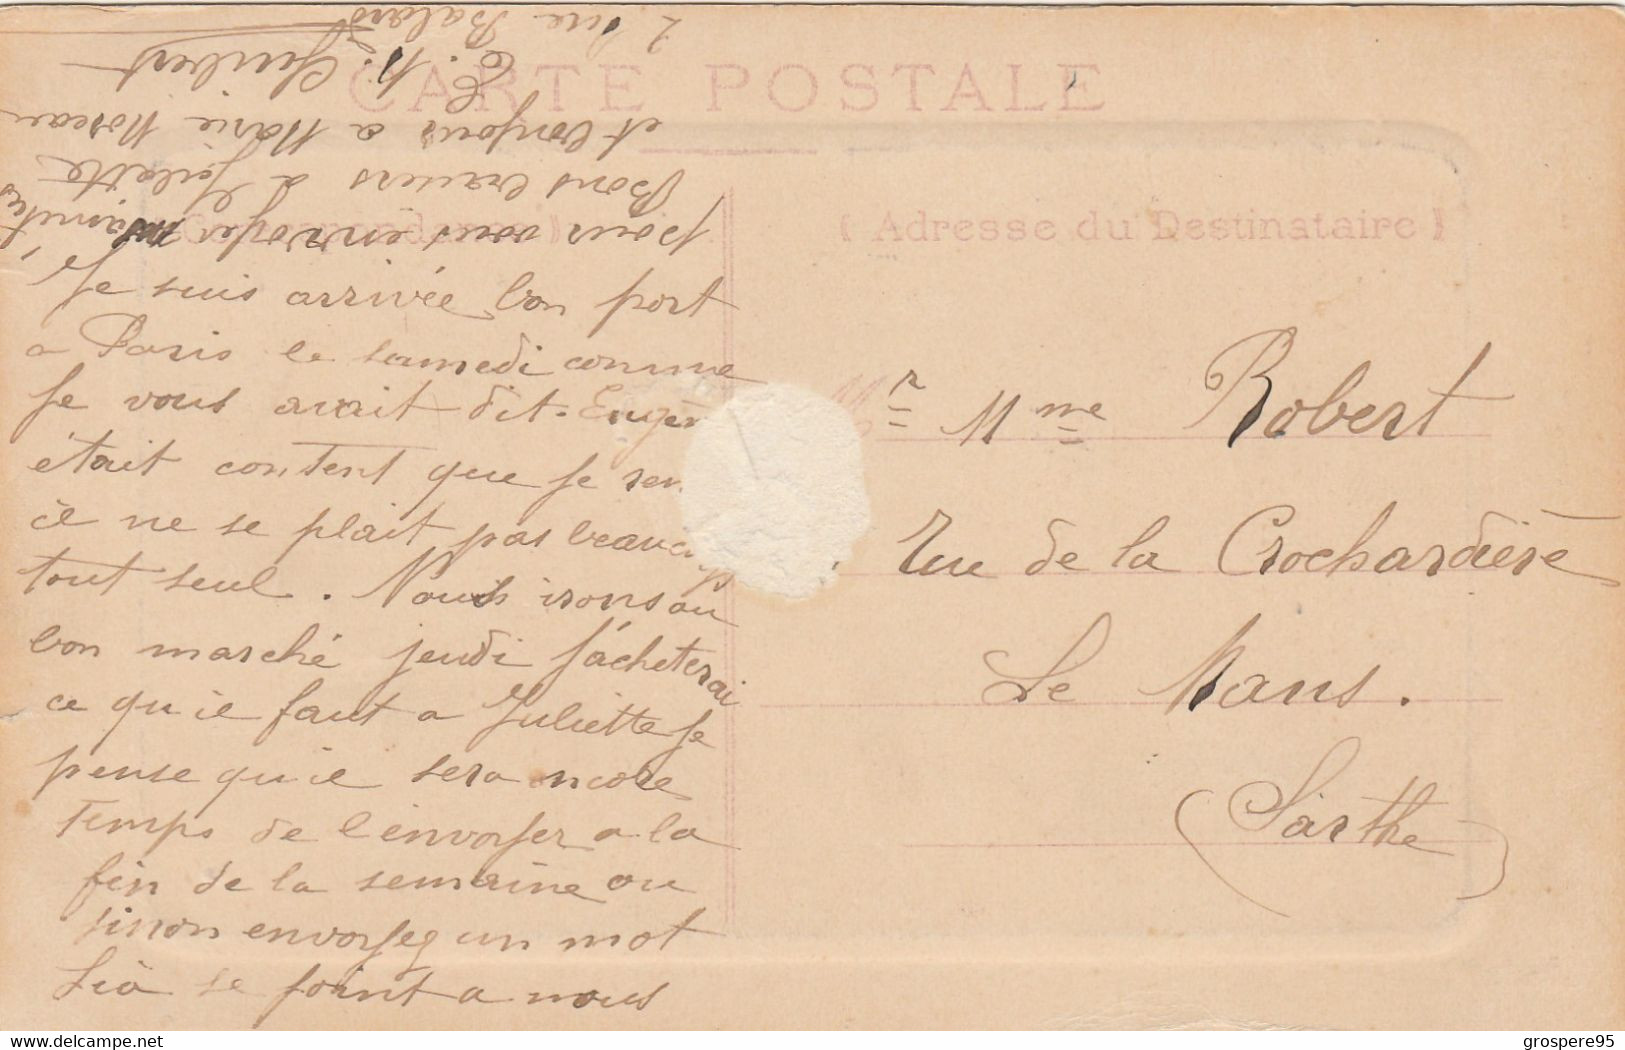 CARTE POSTALE
( Correspondance )
( Adresse du Destinataire )
Je suis arrivée bon port
a Paris le samedi comme
je vous avait dit. Eugèn
était content que je ren
il ne se plait pas beauco
tout seul. Nous irons au
bon marché jeudi j'acheterai
ce qu'il faut a Juliette je
pense qu'il sera encore
temps de l'envoyer a la
fin de la semaine ou
sinon envoyez un mot
Lià se joint a nous
pour vous envoyer nos amitiés
Bons baisers a Juliette
et bonjour a Marie Moreau
E. M. Guibert
2 rue Balard
Mr Mme Robert
rue de la Crochardière
Le Mans.
(Sarthe)
© delcampe.net
grospere95